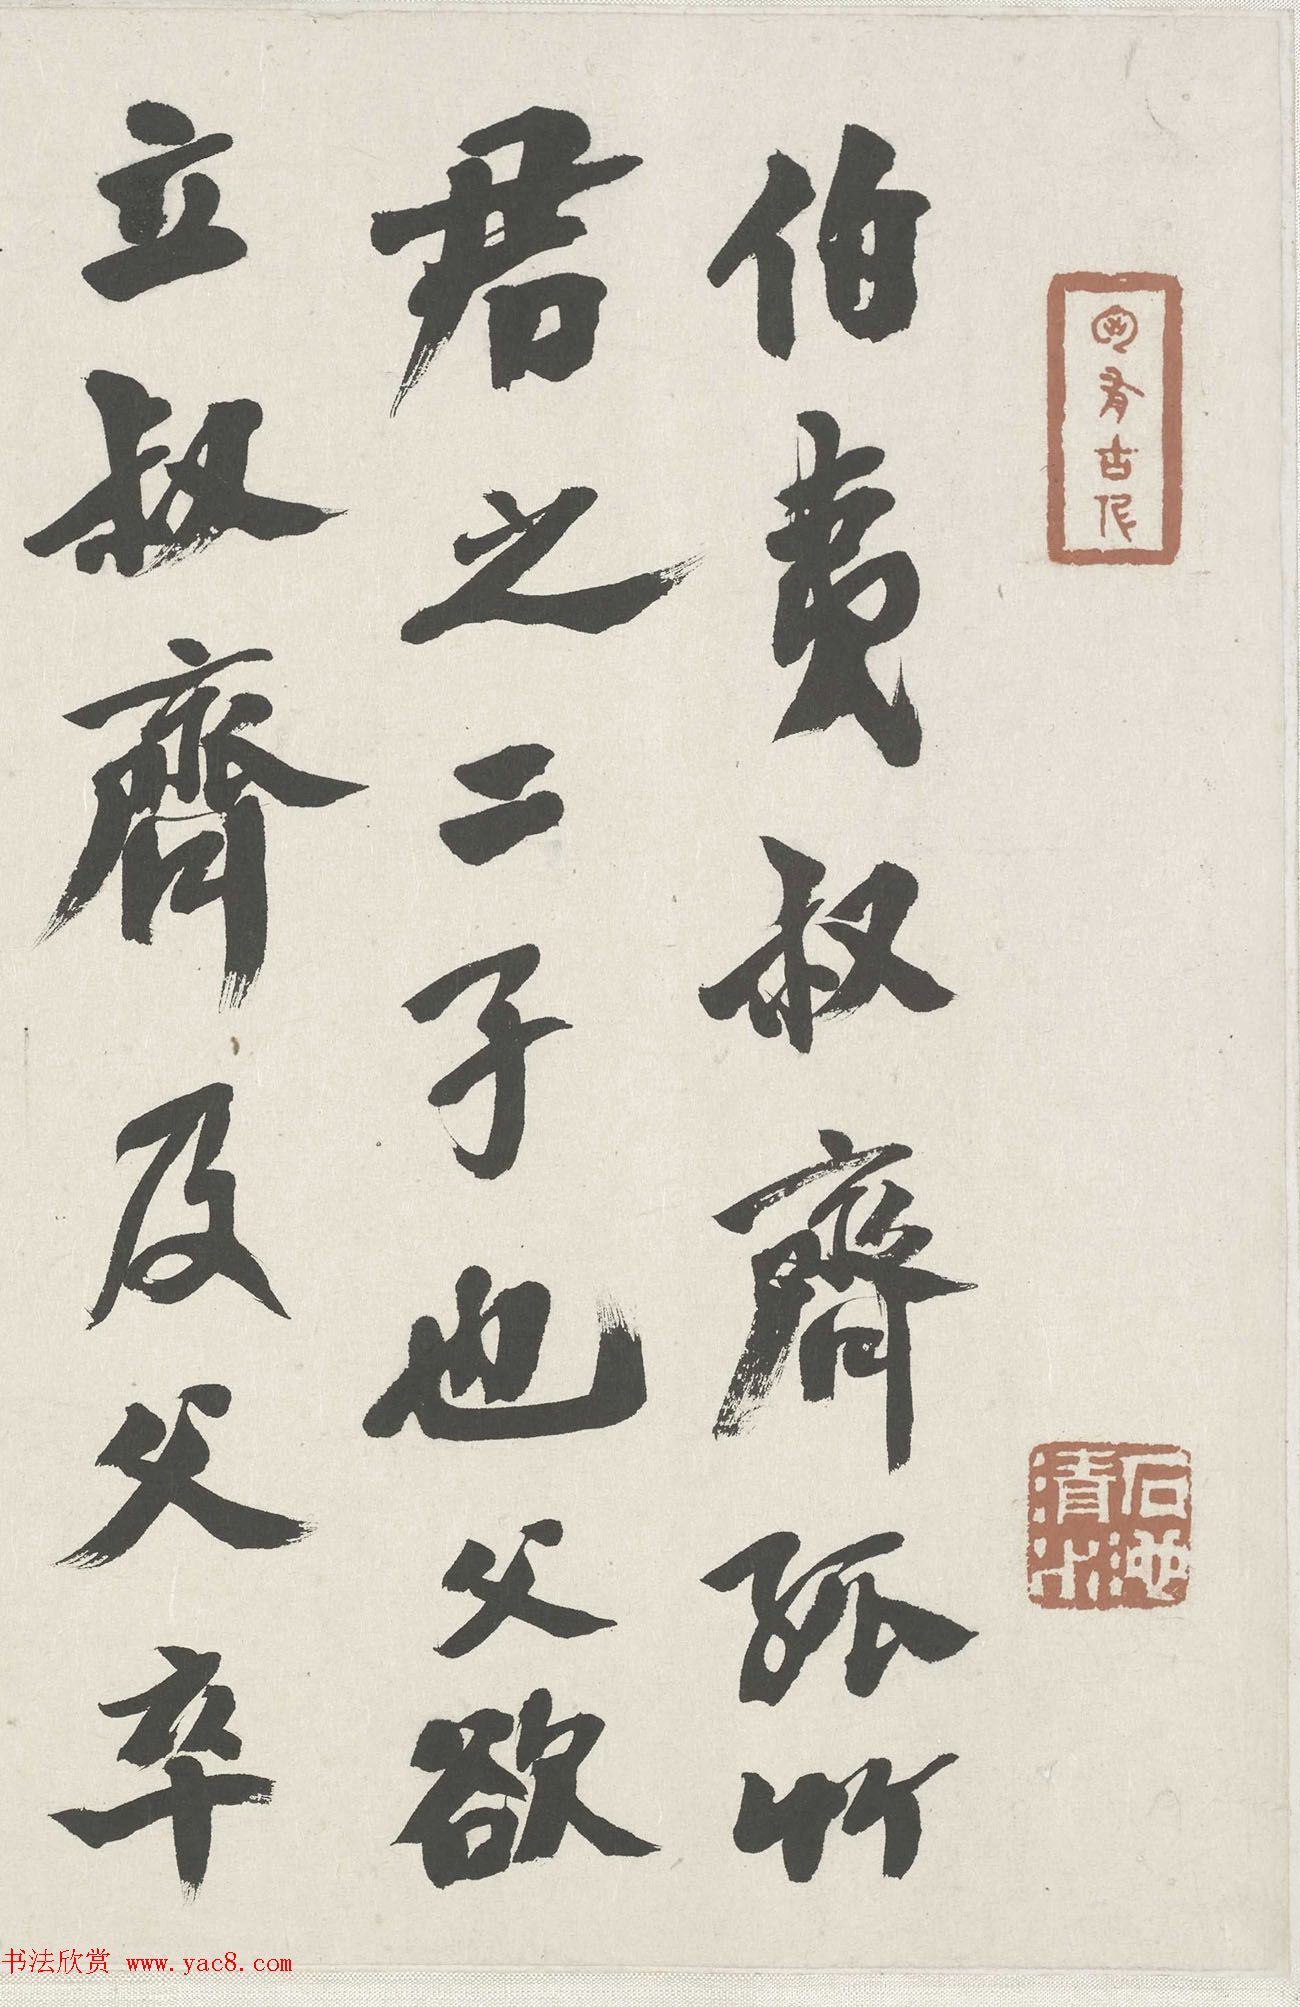 伯夷叔齊孤竹
君之二子也父欲
立叔齊及父卒
书法欣赏 www.yac8.com